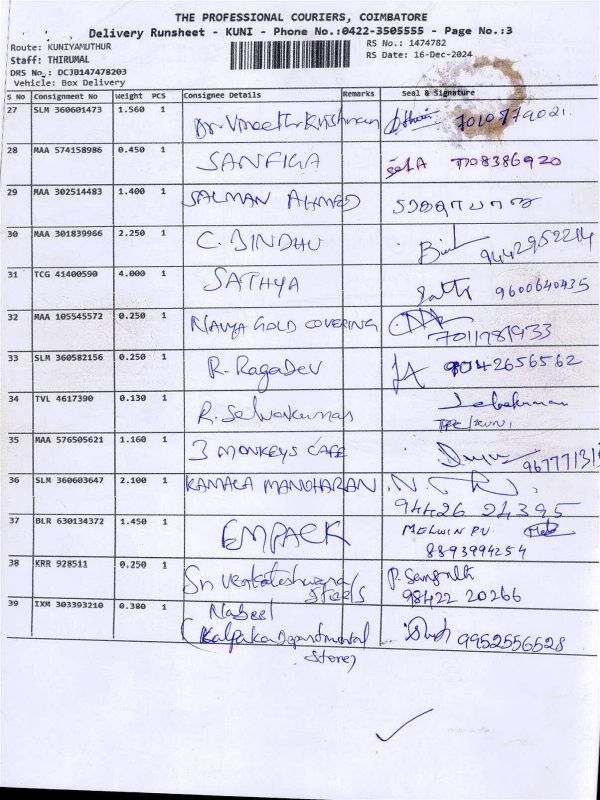 THE PROFESSIONAL COURIERS, COIMBATORE
Delivery Runsheet - KUNI - Phone No.:0422-3505555 - Page No.:3
Route: KUNIYAMUTHUR RS No.: 1474782
Staff: THIRUMAL RS Date: 16-Dec-2024
DRS No.: DCJB147478203
Vehicle: Box Delivery
S No Consignment No Weight PCS Consignee Details Remarks Seal & Signature
27 SLM 360601473 1.560 1 Dr. Vineeth Krishnan 7010879021
28 MAA 574158986 0.450 1 SANFIGA 7708386920
29 MAA 302514483 1.400 1 SALMAN AHMED
30 MAA 301839966 2.250 1 C. BINDHU 9442952214
31 TCG 41400590 4.000 1 SATHYA 9600640435
32 MAA 105545572 0.250 1 NAVYA GOLD COVERING
33 SLM 360582156 0.250 1 R. RagaDev 9042656562
34 TVL 4617390 0.130 1 R. Selvakumar
35 MAA 576505621 1.160 1 3 MONKEYS CAFE
36 SLM 360603647 2.100 1 KAMALA MANOHARAN 94426 24395
37 BLR 630134372 1.450 1 EMPACK MELWIN PU
8893994254
38 KRR 928511 0.250 1 Sri Venkateshwara P. Sampath
Steels 98422 20266
39 IXM 303393210 0.380 1 Nabeel
(Kalpaka Departmental 9952556528
Store)